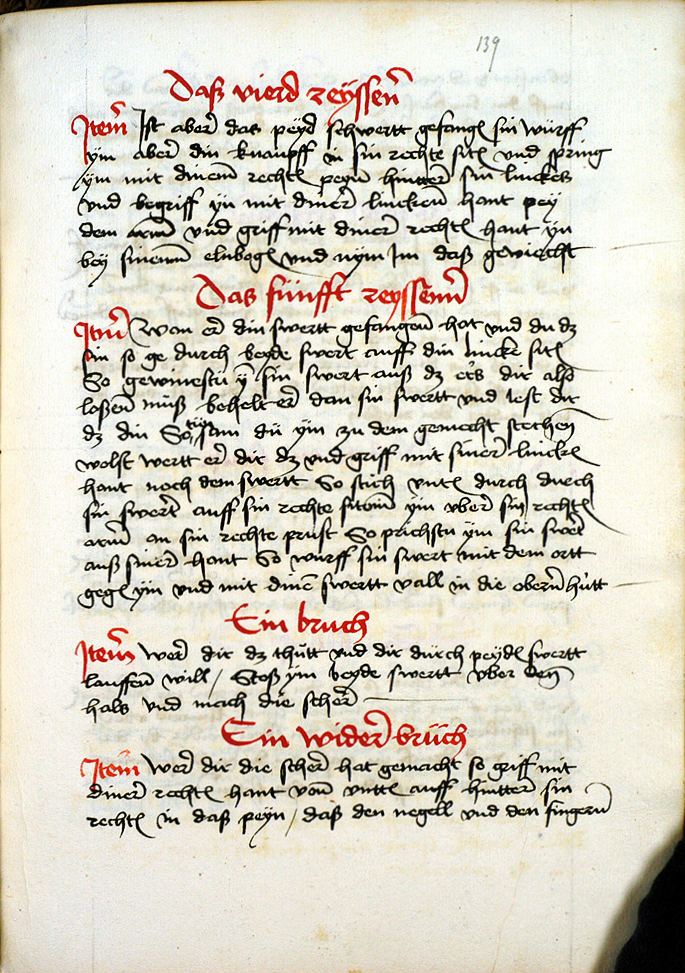 139
Daß vierd reÿssen̄
Item̄ Ist aber̄ das peyd schwertt gefangē sin würff
ym aber̄ din knaupff in sin rechte sitē vnd spring
ym mit dinem̄ rechtē peyn̄ hintter̄ sin linckes
vnd begriff yn mit diner̄ lincken̄ hant pey
dem arm̄ vnd griff mit diner̄ rechtē hant yn
bey sinem̄ elnbogē vnd nym Im daß gewiecht
Das fünfft reyssenn̄
Itm̄ Wan er̄ din swertt gefangen̄ hat vnd du dz
sin so ge durch beyde swert auff din lincke sitē
So gewinestu ÿ sin swert auß dz er's dir also
loßen̄ müß behelt er̄ dan sin swertt vnd lest dir
dz din So kum du ym zu dem gemecht stechen̄
wolst wertt er̄ dir dz vnd griff mit siner̄ linckē
hant noch dem swertt So stich vntē durch durch
sin swert auff sin rechte sitem̄ ym vber̄ sin rechtē
arm̄ an sin rechte prust So prichstu ym sin swert
auß siner̄ hant So wurff sin swert mit dem ortt
gegē ym vnd mit dinē swertt vall in die obern̄ hütt
Ein bruch
Item̄ wer̄ dir dz thutt vnd dir durch peydē swertt
lauffen̄ will / Stoß ym beyde swertt vber den̄
hals vnd mach die scher̄
Ein wider̄ brüch
Item̄ wer̄ dir die scher̄ hat gemacht so griff mit
diner̄ rechtē hant von̄ vnttē auff hintter̄ sin
rechtē in daß peyn / daß den negell vnd den fingern̄